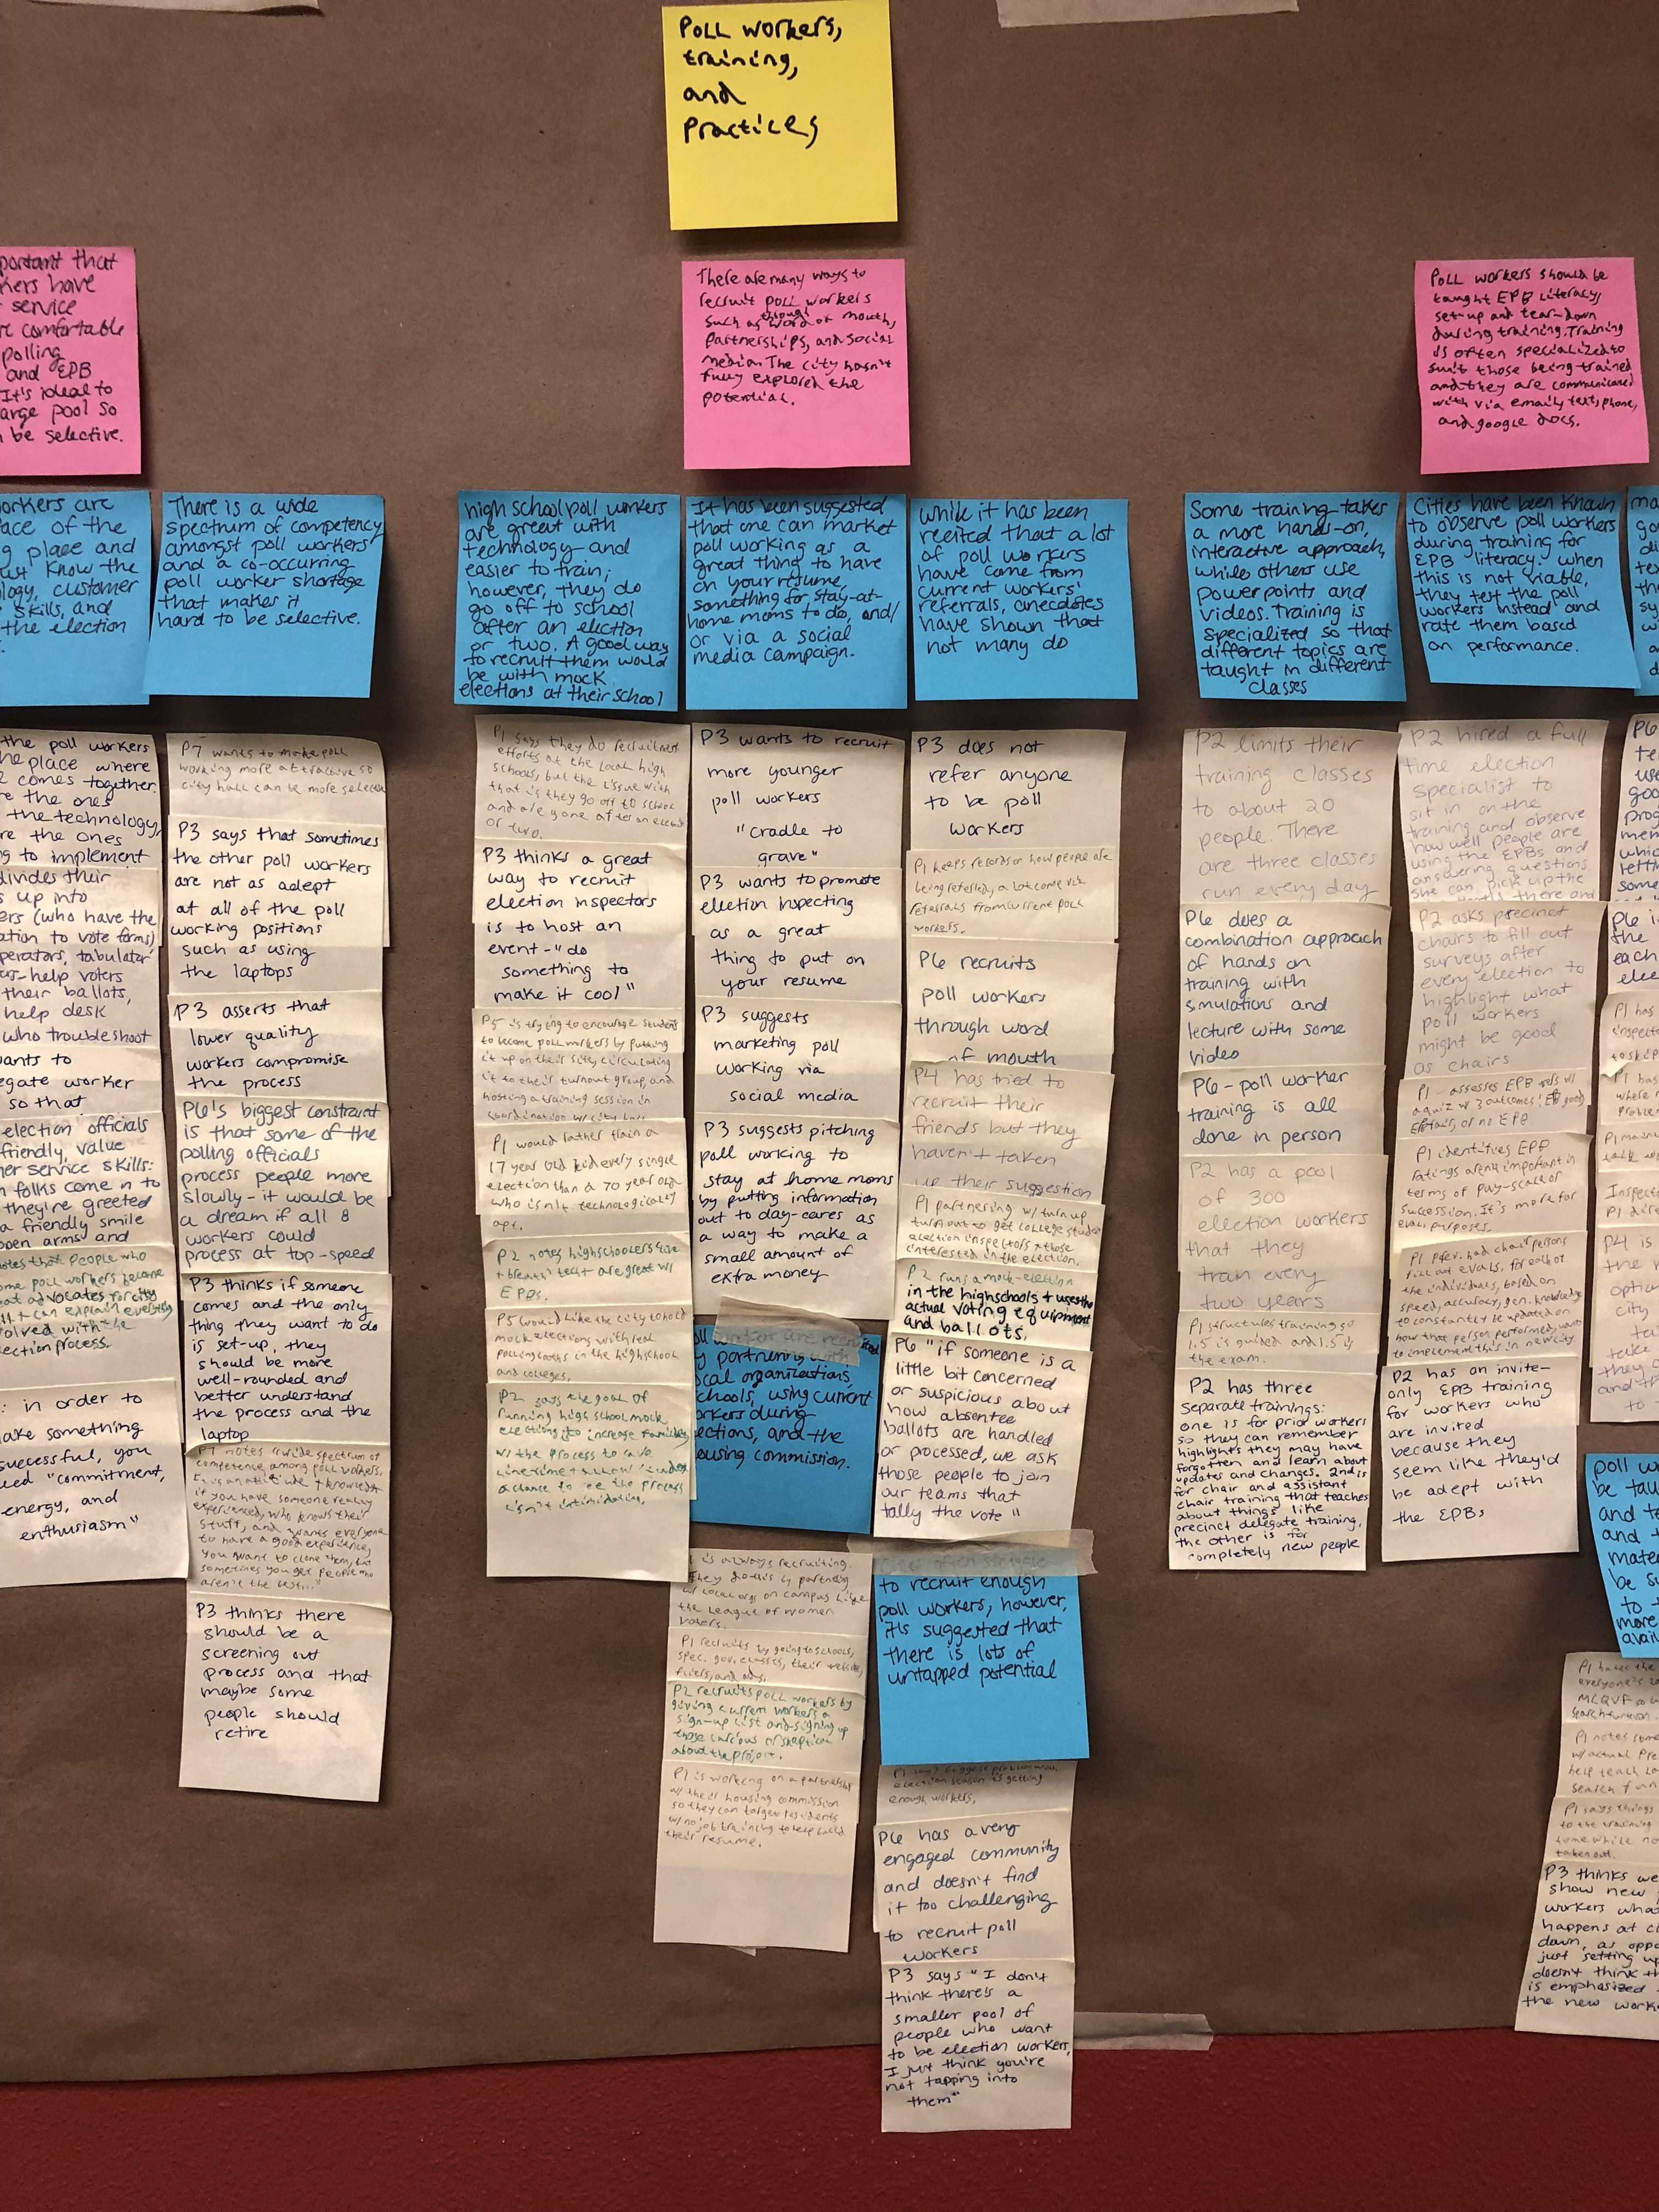 Poll workers,
training,
and
Practices
portant that
kers have
service
re comfortable
polling
and EPB
It's ideal to
arge pool so
n be selective.
There are many ways to
recruit poll workers
though
such as word of mouth,
partnerships, and social
media. The city hasn't
fully explored the
potential.
Poll workers should be
taught EPB Literacy,
set-up and tear-down
during training. Training
is often specialized to
suit those being trained
and they are communicated
with via email, text, phone,
and google docs.
orkers are
ace of the
g place and
ust know the
logy, customer
skills, and
the election
There is a wide
spectrum of competency
amongst poll workers
and a co-occurring
poll worker shortage
that makes it
hard to be selective.
high school poll workers
are great with
technology and
easier to train;
however, they do
go off to school
after an election
or two. A good way
to recruit them would
be with mock
elections at their school
It has been suggested
that one can market
poll working as a
great thing to have
on your resume,
something for stay-at-
home moms to do, and/
or via a social
media campaign.
While it has been
recited that a lot
of poll workers
have come from
current workers'
referrals, anecdotes
have shown that
not many do
Some training takes
a more hands-on,
interactive approach,
while others use
powerpoints and
videos. Training is
specialized so that
different topics are
taught in different
classes
Cities have been known
to observe poll workers
during training for
EPB literacy. When
this is not viable,
they test the poll
workers instead and
rate them based
on performance.
the poll workers
he place where
comes together.
re the ones
the technology,
re the ones
g to implement
divides their
s up into
ers (who have the
ation to vote forms)
perators, tabulator
help voters
their ballots,
help desk
who troubleshoot
ants to
egate worker
so that
election officials
friendly, value
er service skills:
folks come in to
they're greeted
a friendly smile
open arms and
notes that people who
ome poll workers become
advocates for city
can explain everything
volved with the
lection process.
: in order to
make something
successful, you
"commitment,
energy, and
enthusiasm"
P7 wants to make poll
working more attractive so
city hall can be more selective
P3 says that sometimes
the other poll workers
are not as adept
at all of the poll
working positions
such as using
the laptops
P3 asserts that
lower quality
workers compromise
the process
P6's biggest constraint
is that some of the
polling officials
process people more
slowly - it would be
a dream if all 8
workers could
process at top-speed
P3 thinks if someone
comes and the only
thing they want to do
is set-up, they
should be more
well-rounded and
better understand
the process and the
laptop
P1 notes wide spectrum of
competence among poll workers,
if you have someone really
experienced, who knows their
stuff, and wants everyone
to have a good experience,
you want to clone them, but
sometimes you get people who
aren't the best..."
P3 thinks there
should be a
screening out
process and that
maybe some
people should
retire
P1 says they do recruitment
efforts at the local high
schools, but the issue with
that is they go off to school
and are gone after an election
or two.
P3 thinks a great
way to recruit
election inspectors
is to host an
event - "do
something to
make it cool"
P5 is trying to encourage students
to become poll workers by putting
it up on their site, circulating
it to their turnout group, and
hosting a training session in
coordination w/ city
P1 would rather train a
17 year old kid every single
election than a 70 year old
who isn't technologically
apt.
P2 notes highschoolers live
+ breath tech + are great w/
EPBs.
P5 would like the city to hold
mock elections with real
polling booths in the high school
and colleges.
P2 says the goal of
running high school mock
elections is to increase familiarity
w/ the process
a chance to see the process
isn't intimidating.
P3 wants to recruit
more younger
poll workers
"cradle to
grave"
P3 wants to promote
election inspecting
as a great
thing to put on
your resume
P3 suggests
marketing poll
working via
social media
P3 suggests pitching
poll working to
stay at home moms
by putting information
out to day-cares as
a way to make a
small amount of
extra money
worker are recruited
by partnering with
local organizations,
schools, using current
workers during
elections, and the
housing commission.
is always recruiting.
They do this by partnering
w/ local orgs on campus like
the League of Women
Voters.
P1 recruits by going to schools,
spec. gov. classes, their website,
fliers, and ads.
P2 recruits poll workers by
giving current workers a
sign-up list and signing up
those curious or skeptical
about the process.
P1 is working on a partnership
w/ their housing commission
so they can target residents
w/ no job training to help build
their resume.
P3 does not
refer anyone
to be poll
workers
P1 keeps records on how people are
being referred, a lot come via
referrals from current poll
workers.
P6 recruits
poll workers
through word
of mouth
P4 has tried to
recruit their
friends but they
haven't taken
up their suggestion
P1 partnering w/ turn up
turnout to get college student
election inspectors + those
interested in the election.
P2 runs a mock-election
in the highschools + uses the
actual voting equipment
and ballots.
P6 "if someone is a
little bit concerned
or suspicious about
how absentee
ballots are handled
or processed, we ask
those people to join
our teams that
tally the vote"
Cities often struggle
to recruit enough
poll workers, however,
it's suggested that
there is lots of
untapped potential
P1 says biggest problem with
election season is getting
enough workers.
P6 has a very
engaged community
and doesn't find
it too challenging
to recruit poll
workers
P3 says "I don't
think there's a
smaller pool of
people who want
to be election workers,
I just think you're
not tapping into
them"
P2 limits their
training classes
to about 20
people. There
are three classes
run every day
P6 does a
combination approach
of hands on
training with
simulations and
lecture with some
video
P6 - poll worker
training is all
done in person
P2 has a pool
of 300
election workers
that they
train every
two years
P1 structures training so
1.5 is guided and 1.5 is
the exam.
P2 has three
separate trainings:
one is for prior workers
so they can remember
highlights they may have
forgotten and learn about
updates and changes. 2nd is
for chair and assistant
chair training that teaches
about things like
precinct delegate training.
the other is for
completely new people
P2 hired a full
time election
specialist to
sit in on the
training and observe
how well people are
using the EPBs and
answering questions
she can pick up the
there and
P2 asks precinct
chairs to fill out
surveys after
every election to
highlight what
poll workers
might be good
as chairs
P1 - assesses EPB
a quiz w/ 3 outcomes: EPB good,
EPB fair, or no EPB
P1 identifies EPB
ratings aren't important in
terms of pay-scale or
succession. It's more for
eval purposes.
P1 prev. had chairpersons
fill out evals, for each of
the individuals, based on
speed, accuracy, gen. knowledge
to constantly be updated on
how that person performed, want
to implement this in new city
P2 has an invite-
only EPB training
for workers who
are invited
because they
seem like they'd
be adept with
the EPBs
P6
P6 i
the
each
elec
P1 has
inspect
P1 has
where
problem
Inspecto
P4 is
the
option
city
take
they
and
poll w
be tau
and te
and t
mate
be su
to t
more
avail
P1 hates the
everyone's
P1 notes some
w/ actual pre
help teach
search fun
P1 says things
to the training
time while no
taken out.
P3 thinks we
show new
workers what
happens at cl
down, as oppo
just setting up
doesn't think th
is emphasized
the new worke